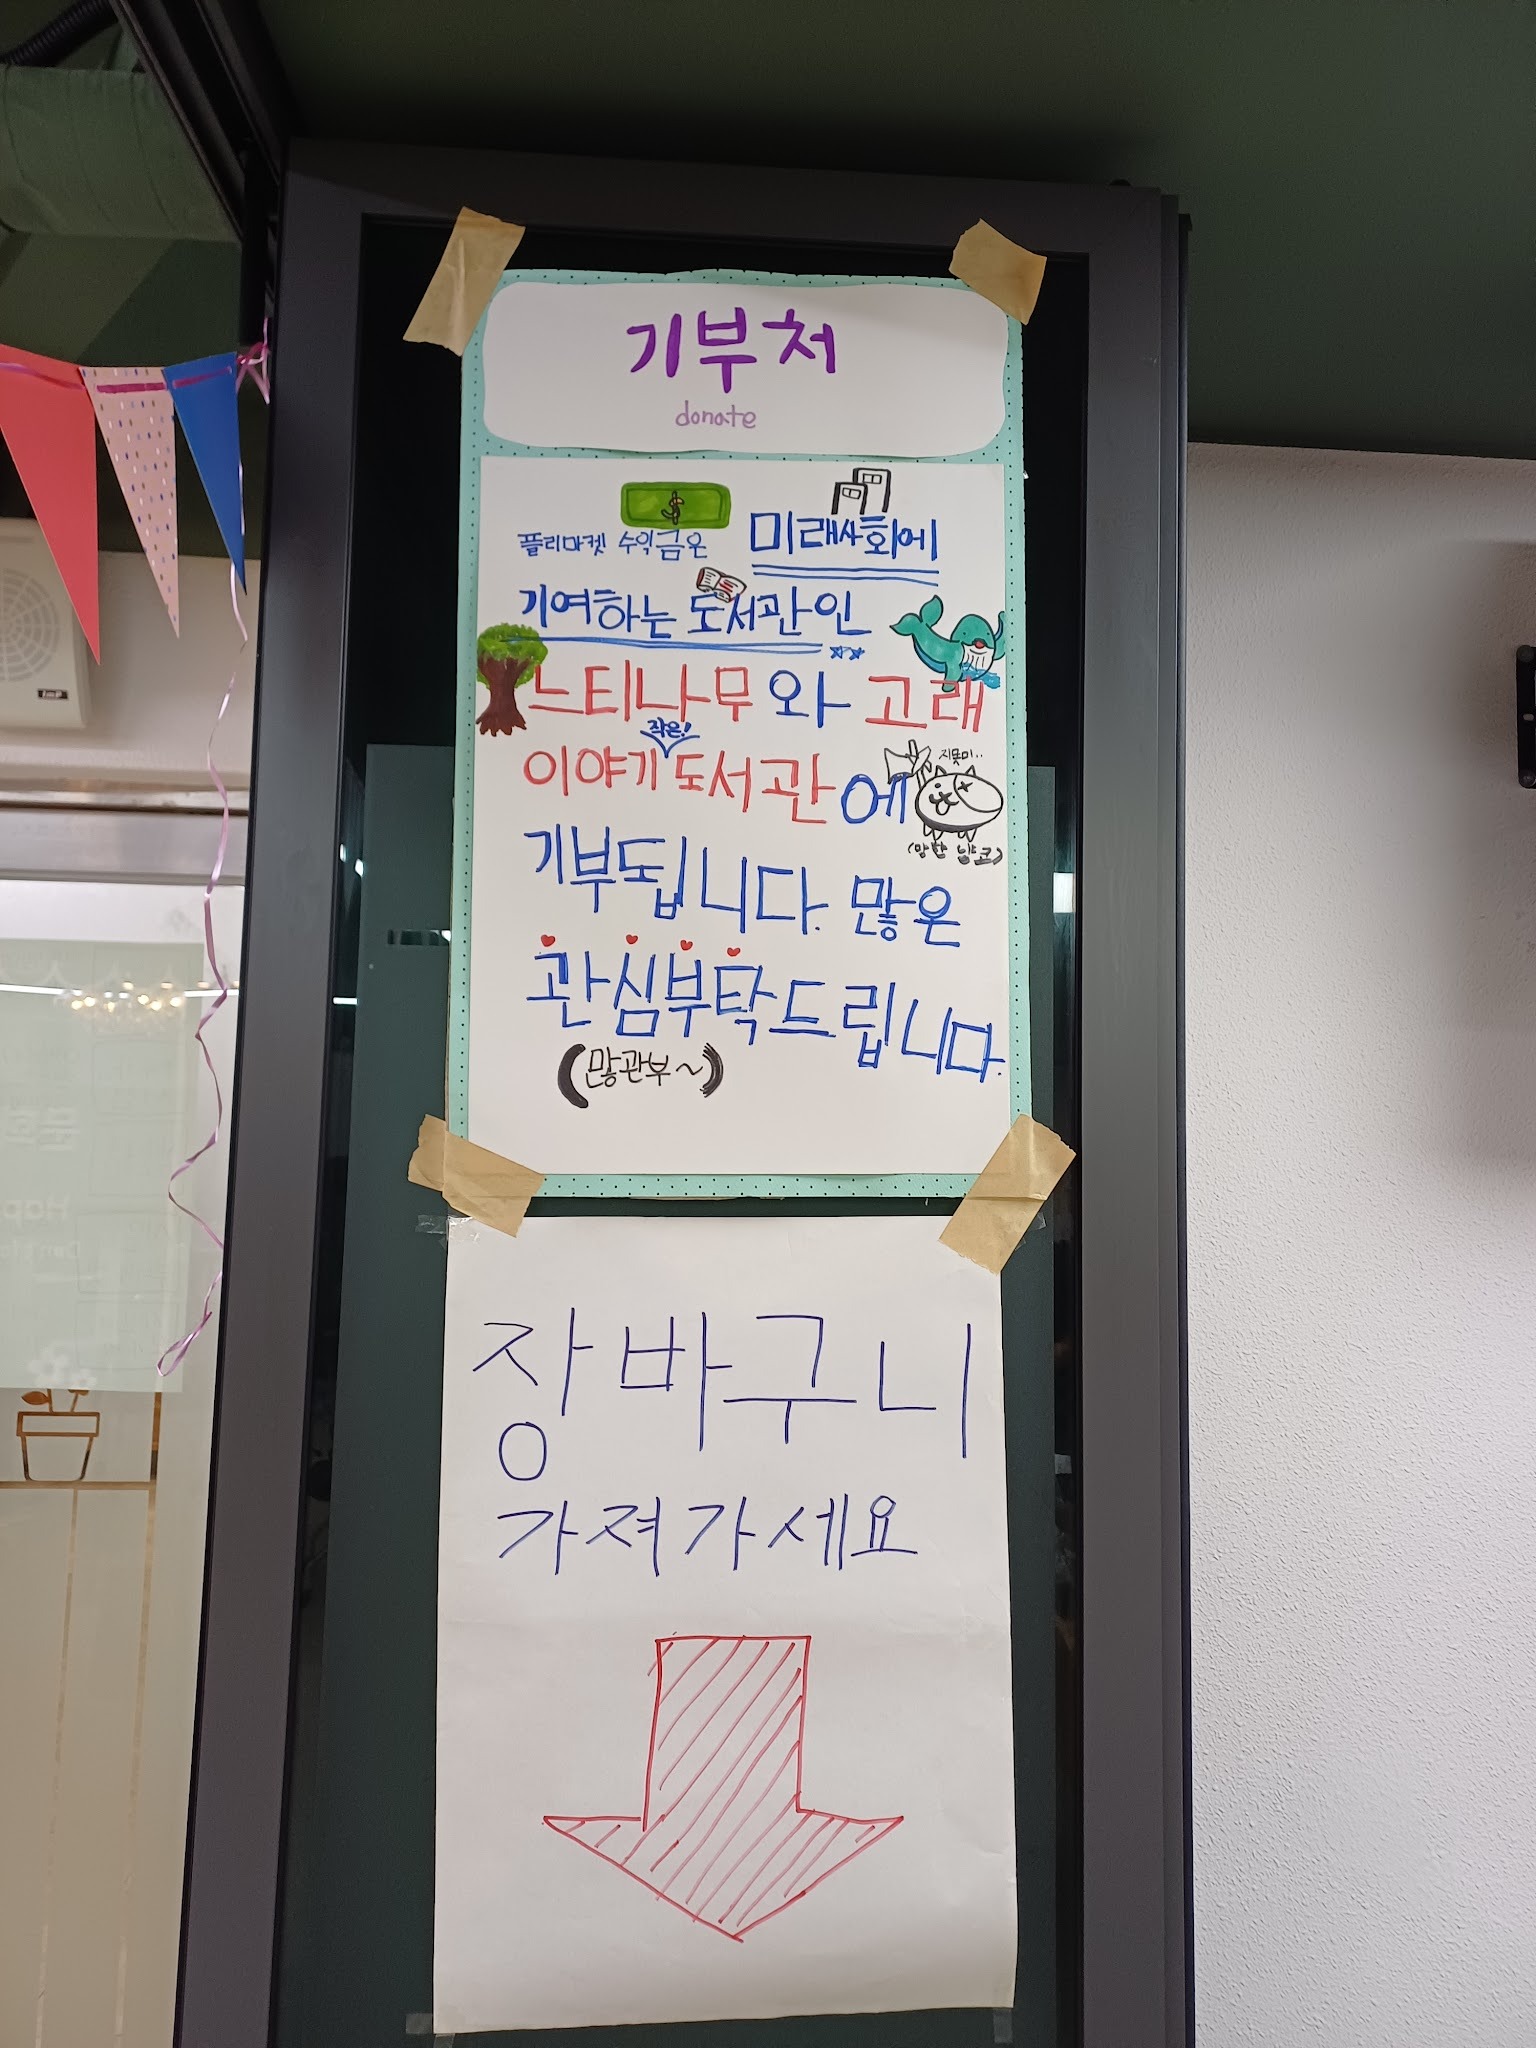 기부처
donate
플리마켓 수익금은 미래사회에
기여하는 도서관인
느티나무와 고래
작은!
이야기 도서관에
지못미..
(망한 냥코)
기부됩니다. 많은
관심부탁드립니다.
(많관부~)
장바구니
가져가세요